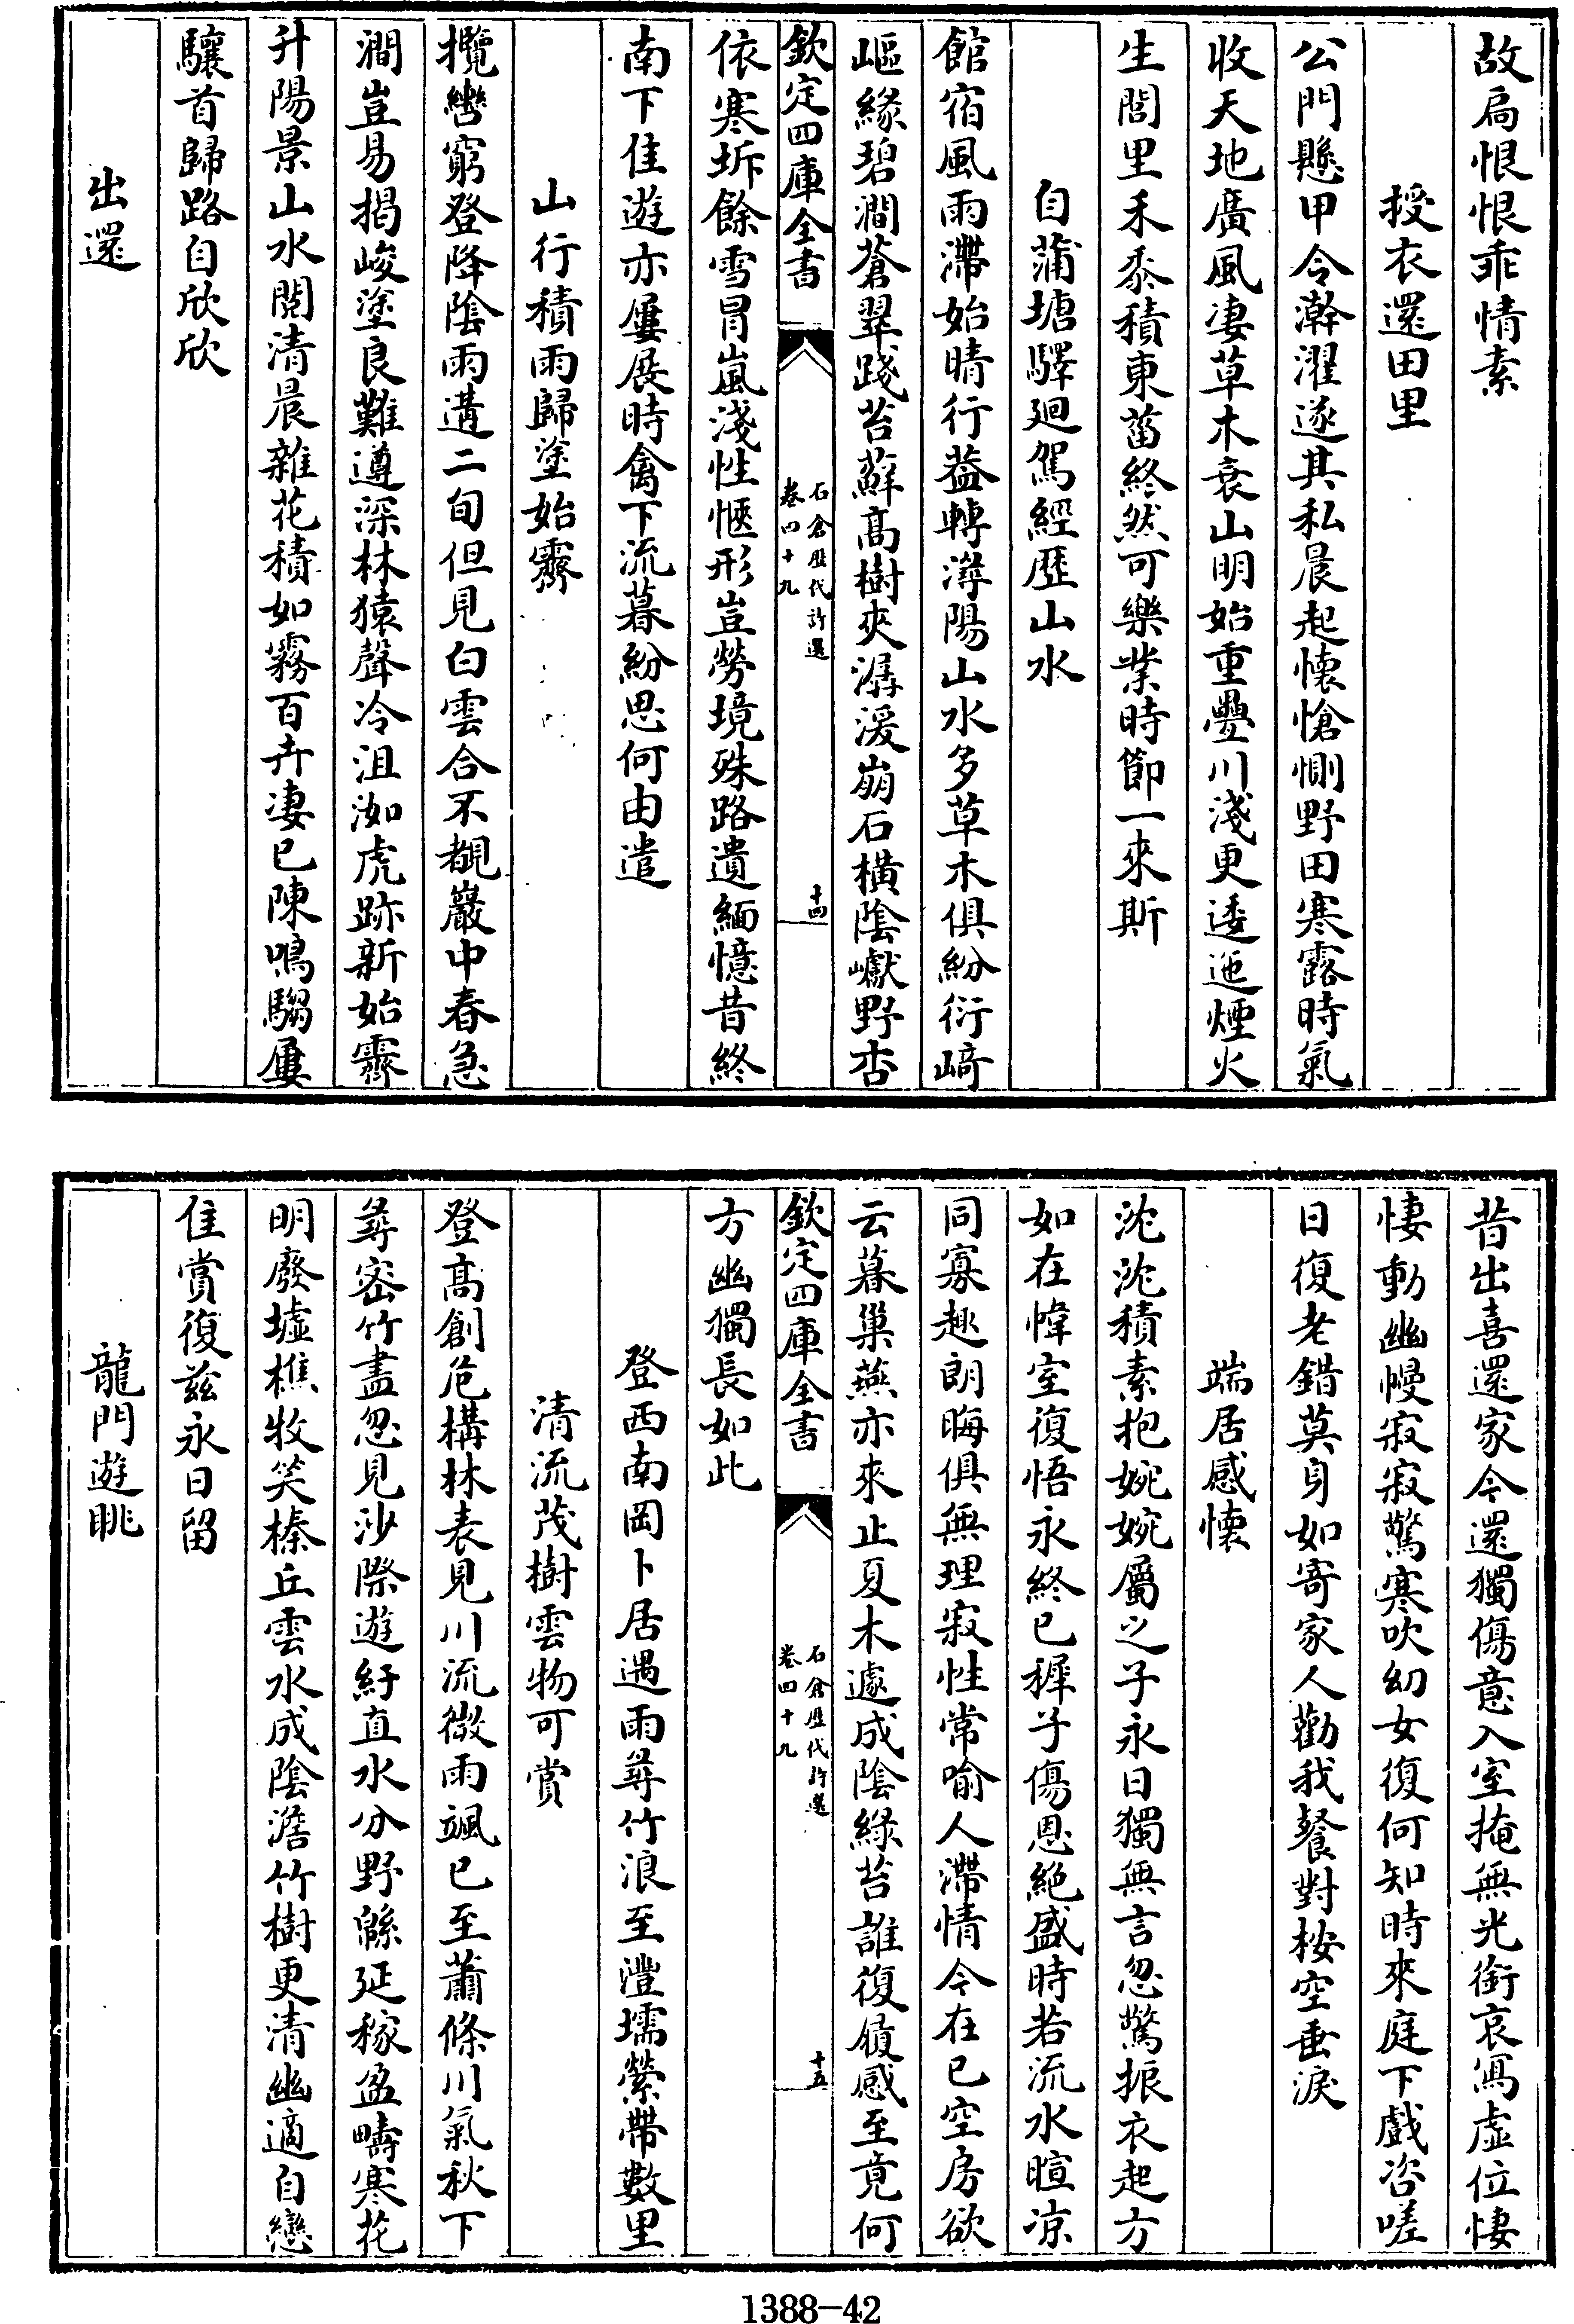 故扄恨恨乖情素
授衣還田里
公門懸甲令瀚濯遂其私晨起懐愴惻野田寒露時氣
收天地廣風凄草木衰山明始重疊川淺更逶迤煙火
生閭里禾黍積東菑終然可樂業時節一來斯
自蒲塘驛廻駕經歴山水
館宿風雨滯始晴行葢轉潯陽山水多草木俱紛衍崎
嶇緣碧澗蒼翠踐苔蘚髙樹夾潺湲崩石橫陰巘野杏
欽定四庫全書
石倉歴代詩選
卷四十九
十四
依寒坼餘雪冒嵐淺性愜形豈勞境殊路遺緬憶昔終
南下佳遊亦屢展時禽下流暮紛思何由遣
山行積雨歸塗始霽
攬轡窮登降陰雨遘二旬但見白雲合不覩巖中春急
澗豈易揭峻塗良難遵深林猿聲冷沮洳虎跡新始霽
升陽景山水閱清晨雜花積如霧百卉凄已陳鳴騶屢
驤首歸路自欣欣
出還
昔出喜還家今還獨傷意入室掩無光銜哀寫虛位悽
悽動幽幔寂寂驚寒吹幼女復何知時來庭下戲咨嗟
日復老錯莫身如寄家人勸我餐對按空垂淚
端居感懐
沈沈積素抱婉婉屬之子永日獨無言忽驚振衣起方
如在幃室復悟永終已穉子傷恩絶盛時若流水暄凉
同寡趣朗晦俱無理寂性常喻人滯情今在已空房欲
云暮巢燕亦來止夏木遽成陰緑苔誰復履感至竟何
欽定四庫全書
石倉歴代詩選
卷四十九
十五
方幽獨長如此
登西南岡卜居遇雨尋竹浪至灃壖縈帶數里
清流茂樹雲物可賞
登髙創危構林表見川流微雨颯已至蕭條川氣秋下
尋密竹盡忽見沙際遊紆直水分野緜延稼盈疇寒花
明廢墟樵牧笑榛丘雲水成陰澹竹樹更清幽適自戀
佳賞復兹永日留
龍門遊眺
1388-42